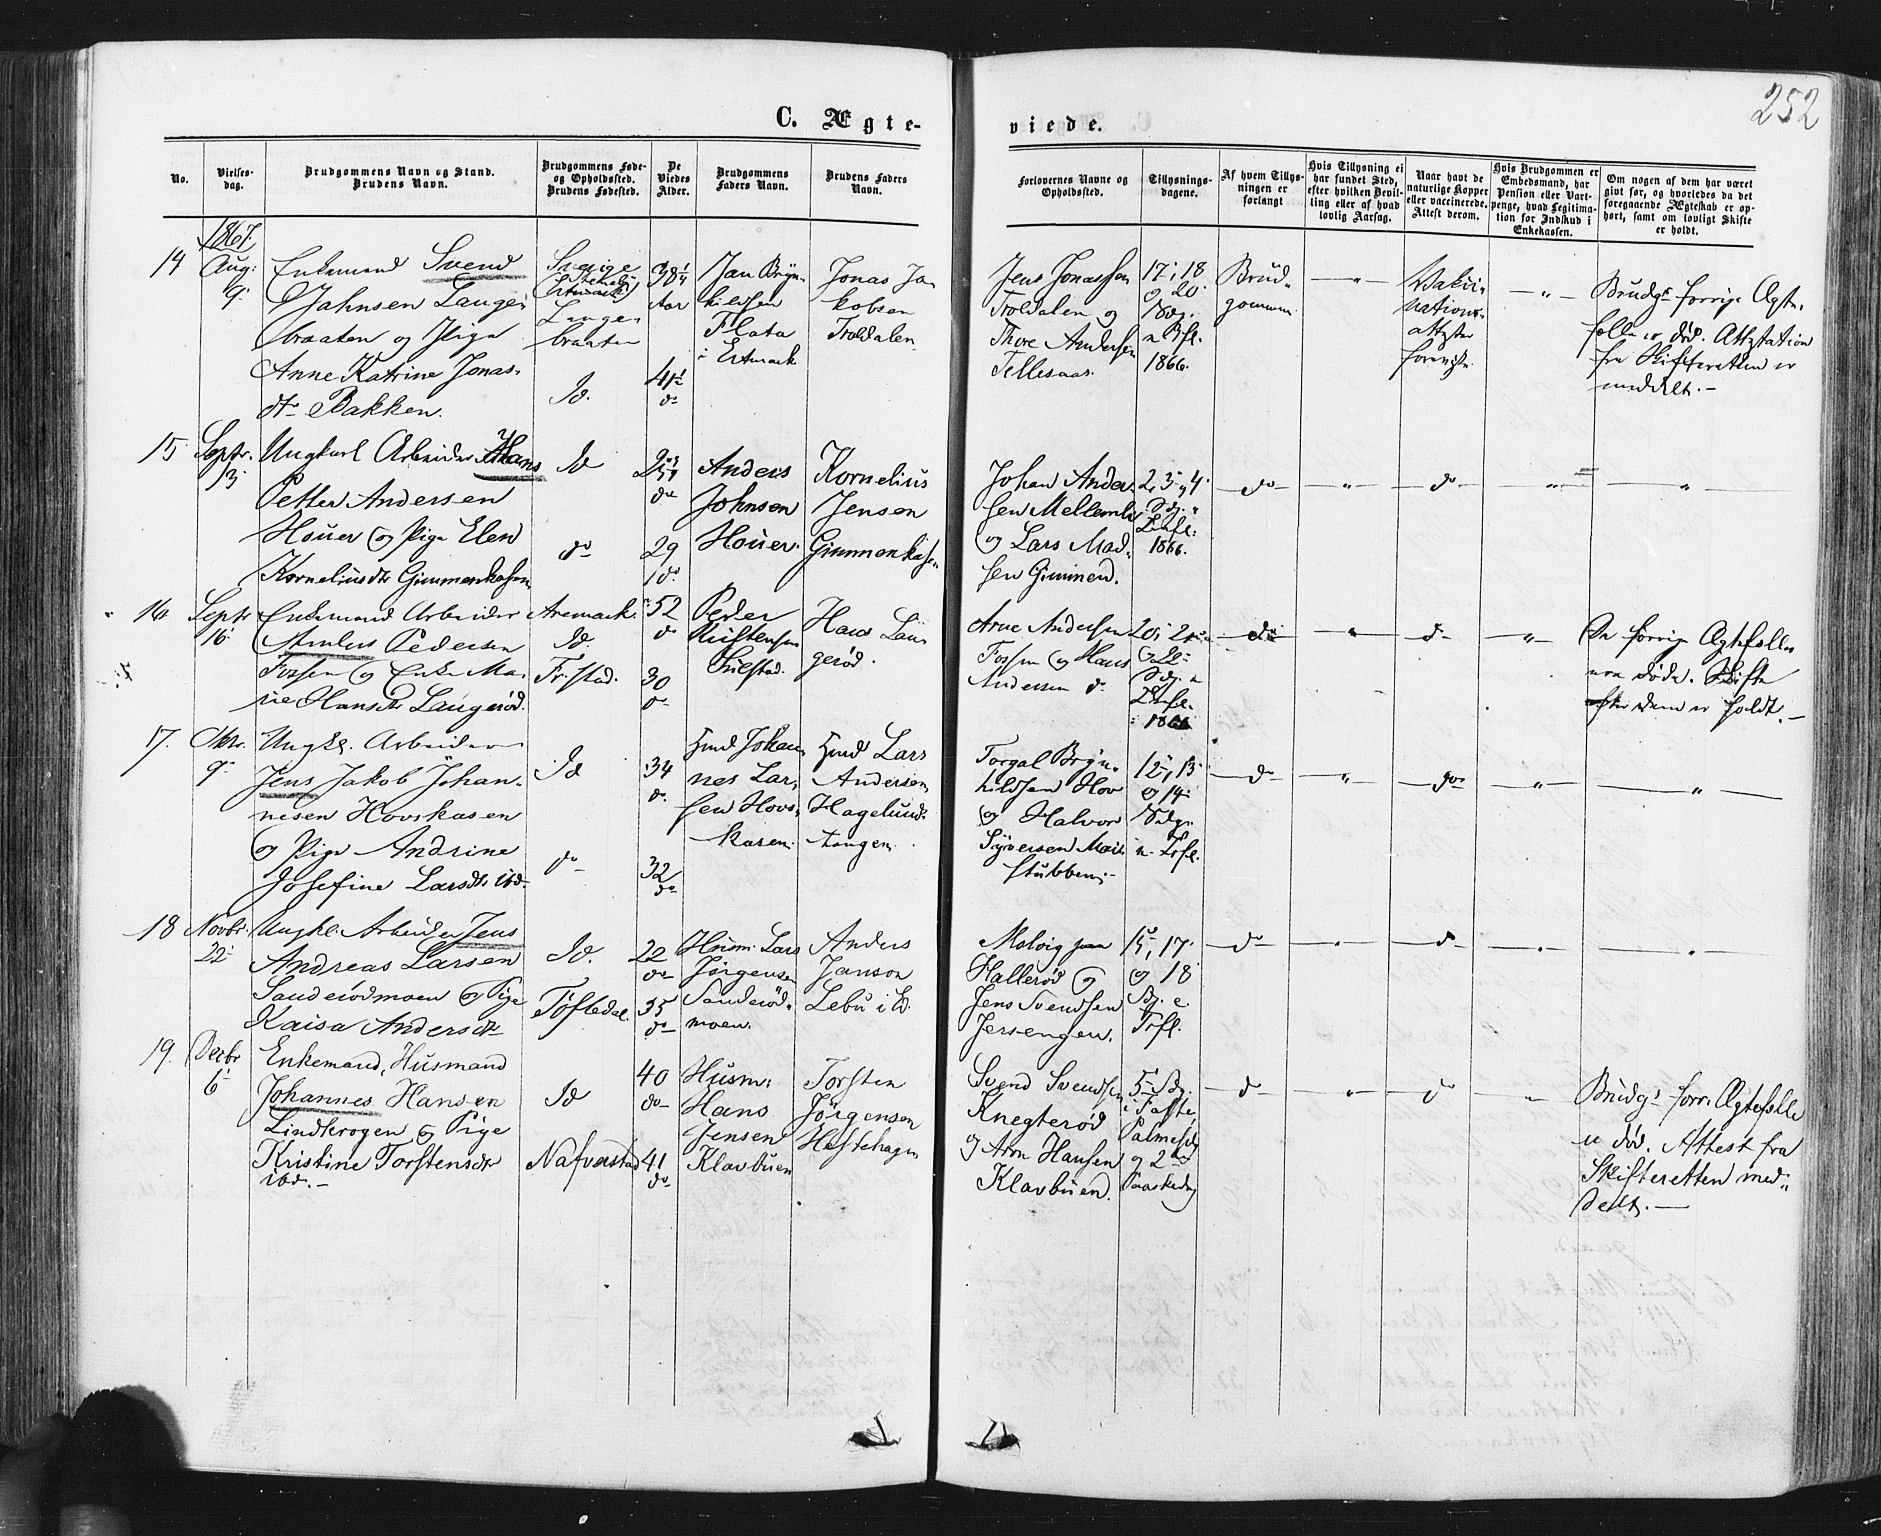 252
C. Ægte-
viede.
No.
Vielses-
dag.
Brudgommens Navn og Stand.
Brudens Navn.
Brudgommens Føde-
og Opholdssted.
Brudens Fødested.
De
Viedes
Alder.
Brudgommens
Faders Navn.
Brudens Faders
Navn.
Forlovernes Navne og
Opholdssted.
Tillysnings-
dagene.
Af hvem Tillys-
ningen er
forlangt
Hvis Tillysning ei
har fundet Sted,
efter hvilken Bevil-
ling eller af hvad
lovlig Aarsag.
Naar havt de
naturlige Kopper
eller vaccinerede.
Attest derom.
Hvis Brudgommen er
Embedsmand, har
Pension eller Vart-
penge, hvad Legitima-
tion for Indskud i
Enkekassen.
Om nogen af dem har været
givt før, og hvorledes da det
foregaaende Ægteskab er op-
hørt, samt om lovligt Skifte
er holdt.
1867.
14
Aug:
9.
Enkemand Svend
Jahnsen Lange-
braaten og Pige
Anne Katrine Jonas-
dtr Bakken.
Sverige
Lange-
braaten
Id.
38 1/4
Aar
41 1/2
do
Jan Bryn-
hildsen
Flata
i Ertmark
Jonas Ja-
kobsen
Troldalen
Jens Jonassen
Troldalen og
Thore Andersen
Tellesaas.
17, 18
og 20
Sdg.
1866.
Brud-
gommen
"
Vaksi-
nations-
attester
forevist.
"
Brudgs forrige Ægte-
fælle er død. Attestation
fra Skifteretten er
meddelt.-
15
Septr.
13
Ungkarl Arbeider Hans
Petter Andersen
Houer og Pige Elen
Korneliusdtr Gimmenkasen
Id
do
do
29
do
Anders
Johnsen
Houer.
Kornelius
Jensen
Gimmenkasen
Johan Ander-
sen Mellem
og Lars Mad-
sen Gimmen.
2, 3 og 4
1866.
do
"
do
"
"
16
Septr
16
Enkemand Arbeider
Pedersen
Fossen og Enke Ma-
rie Hansdtr Langerød.
Aremark
Id.
Fr.stad.
52
do
30
do
Peder
Kristensen
Hans Lan-
gerød.
Arne Andersen
Fossen og Hans
Andersen do
20, 21
og 22
1866
do
"
do
"
De forrige Ægtefæller
ere døde. Skifte
efter dem er holdt.-
17.
Oktr.
9
Ungkl. Arbeider
Jens Jakob Johan-
nesen Hovskasen
og Pige Andrine
Josefine Larsdtr ibd.
Id
do
34
do
32
do
Johan-
nes Lar-
sen Hovs-
kasen.
Lars
Andersen
Hagelund-
tangen.
Torgal Bryn-
hildsen Hov
og Halvor
Syversen Moe-
stubben.-
12, 13
og 14
do
"
do
"
"
18
Novbr.
22
Ungkl. Arbeider Jens
Andreas Larsen
Sanderødmoen og Pige
Kaisa Andersdtr
Id.
Töftedal.
22
do
35
do
Husm. Lars
Jørgensen
Sanderød-
moen.
Anders
Janson
Lebu i Id.
Hallerød og
Jens Svendsen
Jersengen.
15, 17
og 18
do
"
do
"
"
19.
Decbr
6
Enkemand, Husmand
Johannes Hansen
Lindkrogen og Pige
Kristine Torstensdtr
ibd.-
Id
Nafverstad
40
do
41
do
Husm:
Hans
Jensen
Klavbuen
Torsten
Jørgensen
Hestehagen
Svend Svendsen
Knegterød
og Aron Hansen
Klavbuen.
5 Sdg.
i Faste,
Palmesdg
og 2den
Paaskedag
do
"
do
"
Brudgs forr. Ægtefælle
er død. Attest fra
Skifteretten med-
delt.-